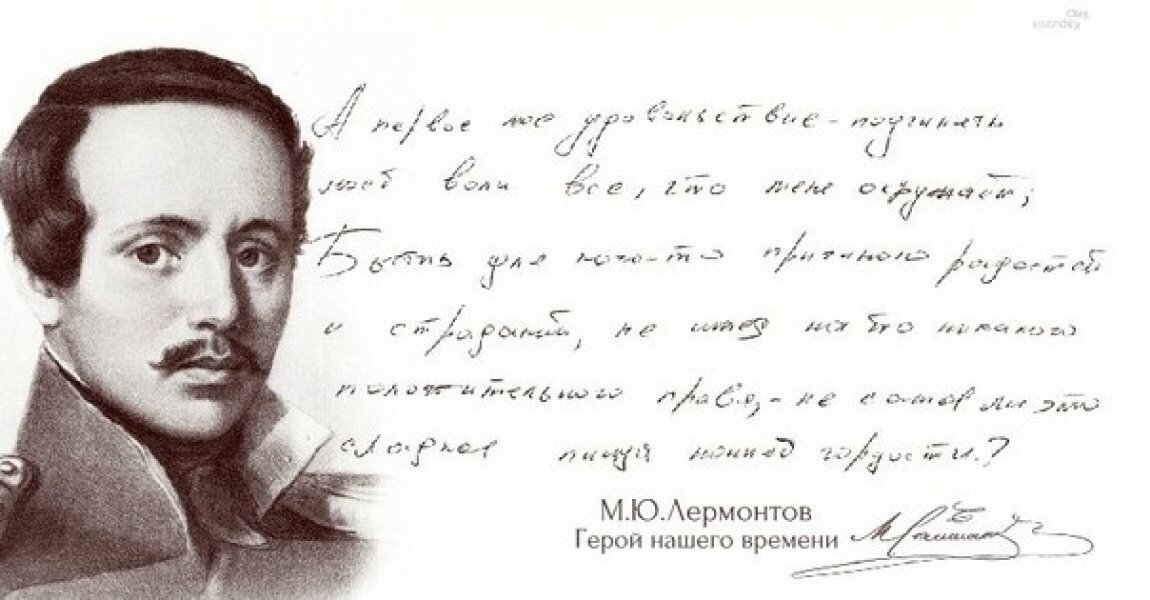 А первое мое удовольствие - подчинять
моей воли все, что меня окружает;
Быть для кого-то причиною радостей
и страданий, не имея на это никакого
положительного права, - не самая ли это
сладкая пища нашей гордости?
М.Ю.Лермонтов
Герой нашего времени